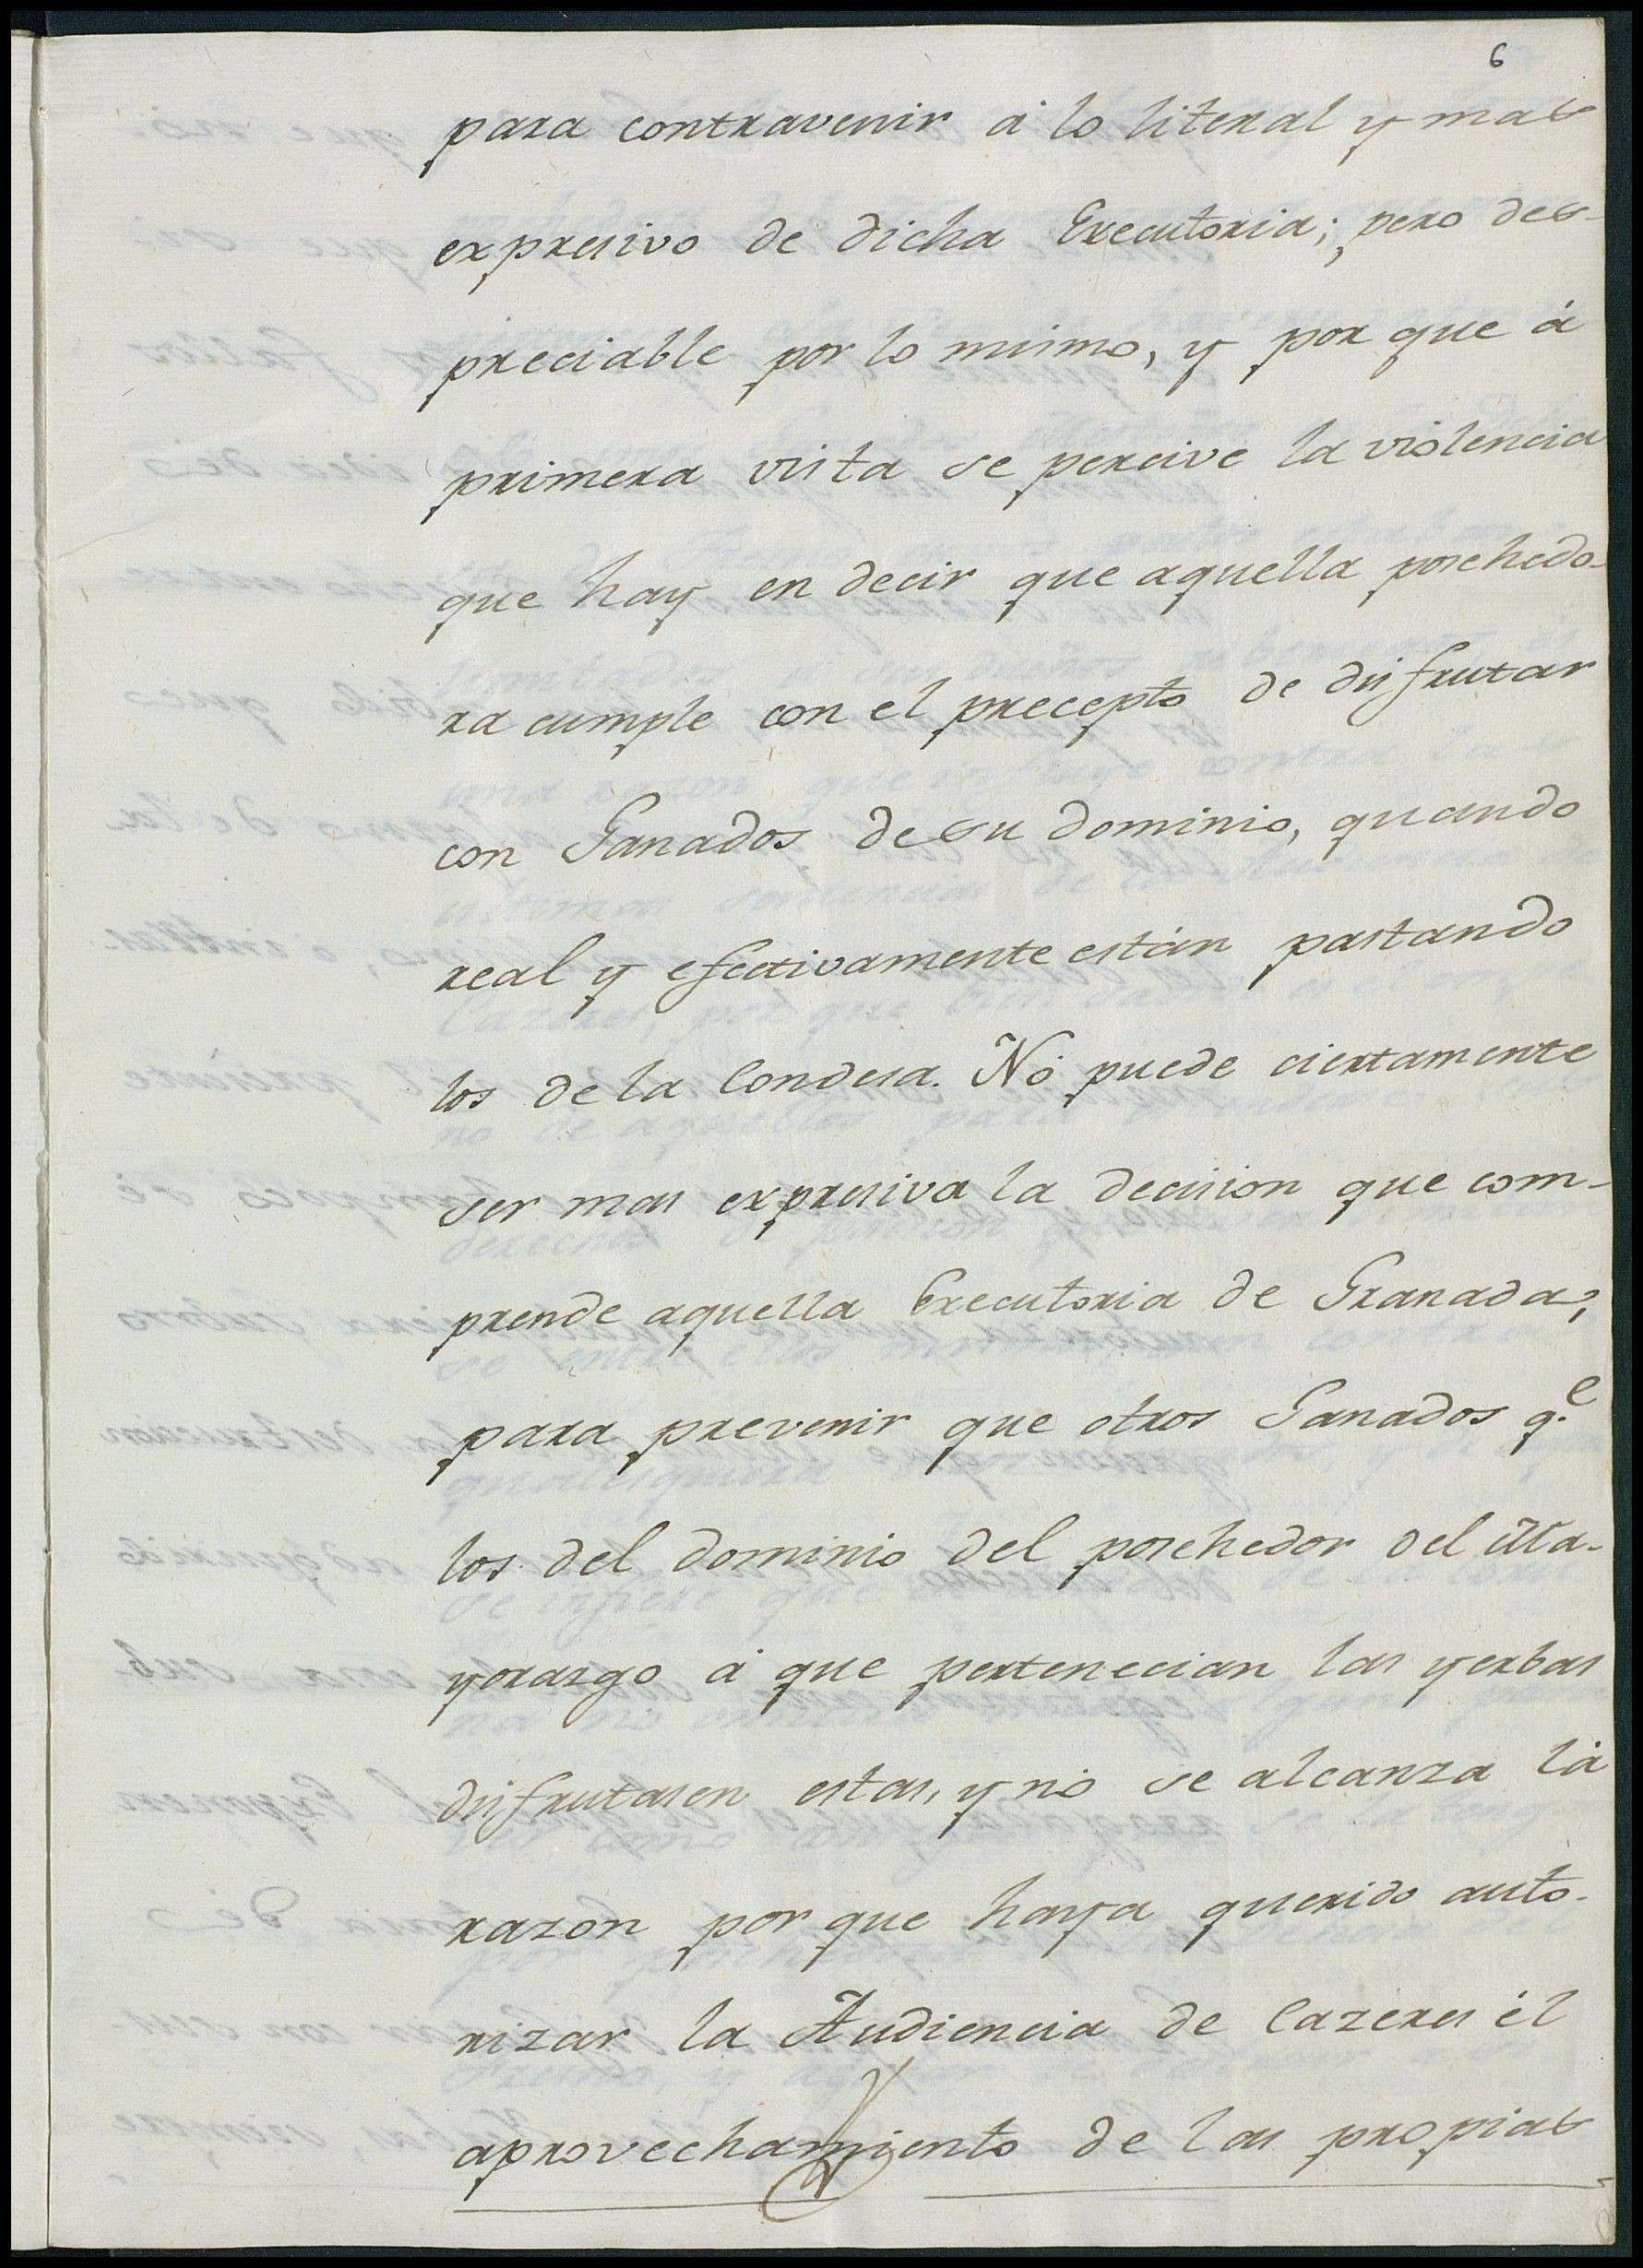 6
para contravenir á lo literal y mas
expresivo de dicha Executoria; pero des-
preciable por lo mismo, y por que á
primera vista se percive la violencia
que hay en decir que aquella pohehedo-
ra cumple con el precepto de disfrutar
con Ganados de su dominio, quando
real y efectivamente están pastando
los de la Condesa. Nó puede ciertamente
ser mas expresiva la decision que com-
prende aquella Executoria de Granada,
para prevenir que otros Ganados q.e
los del dominio del posehedor del Ma-
yorazgo á que pertenecian las yerbas
disfrutasen estas, y nó se alcanza lá
razon por que haya querido auto-
rizar la Audiencia de Cazeres él
aprovechamiento de las propias